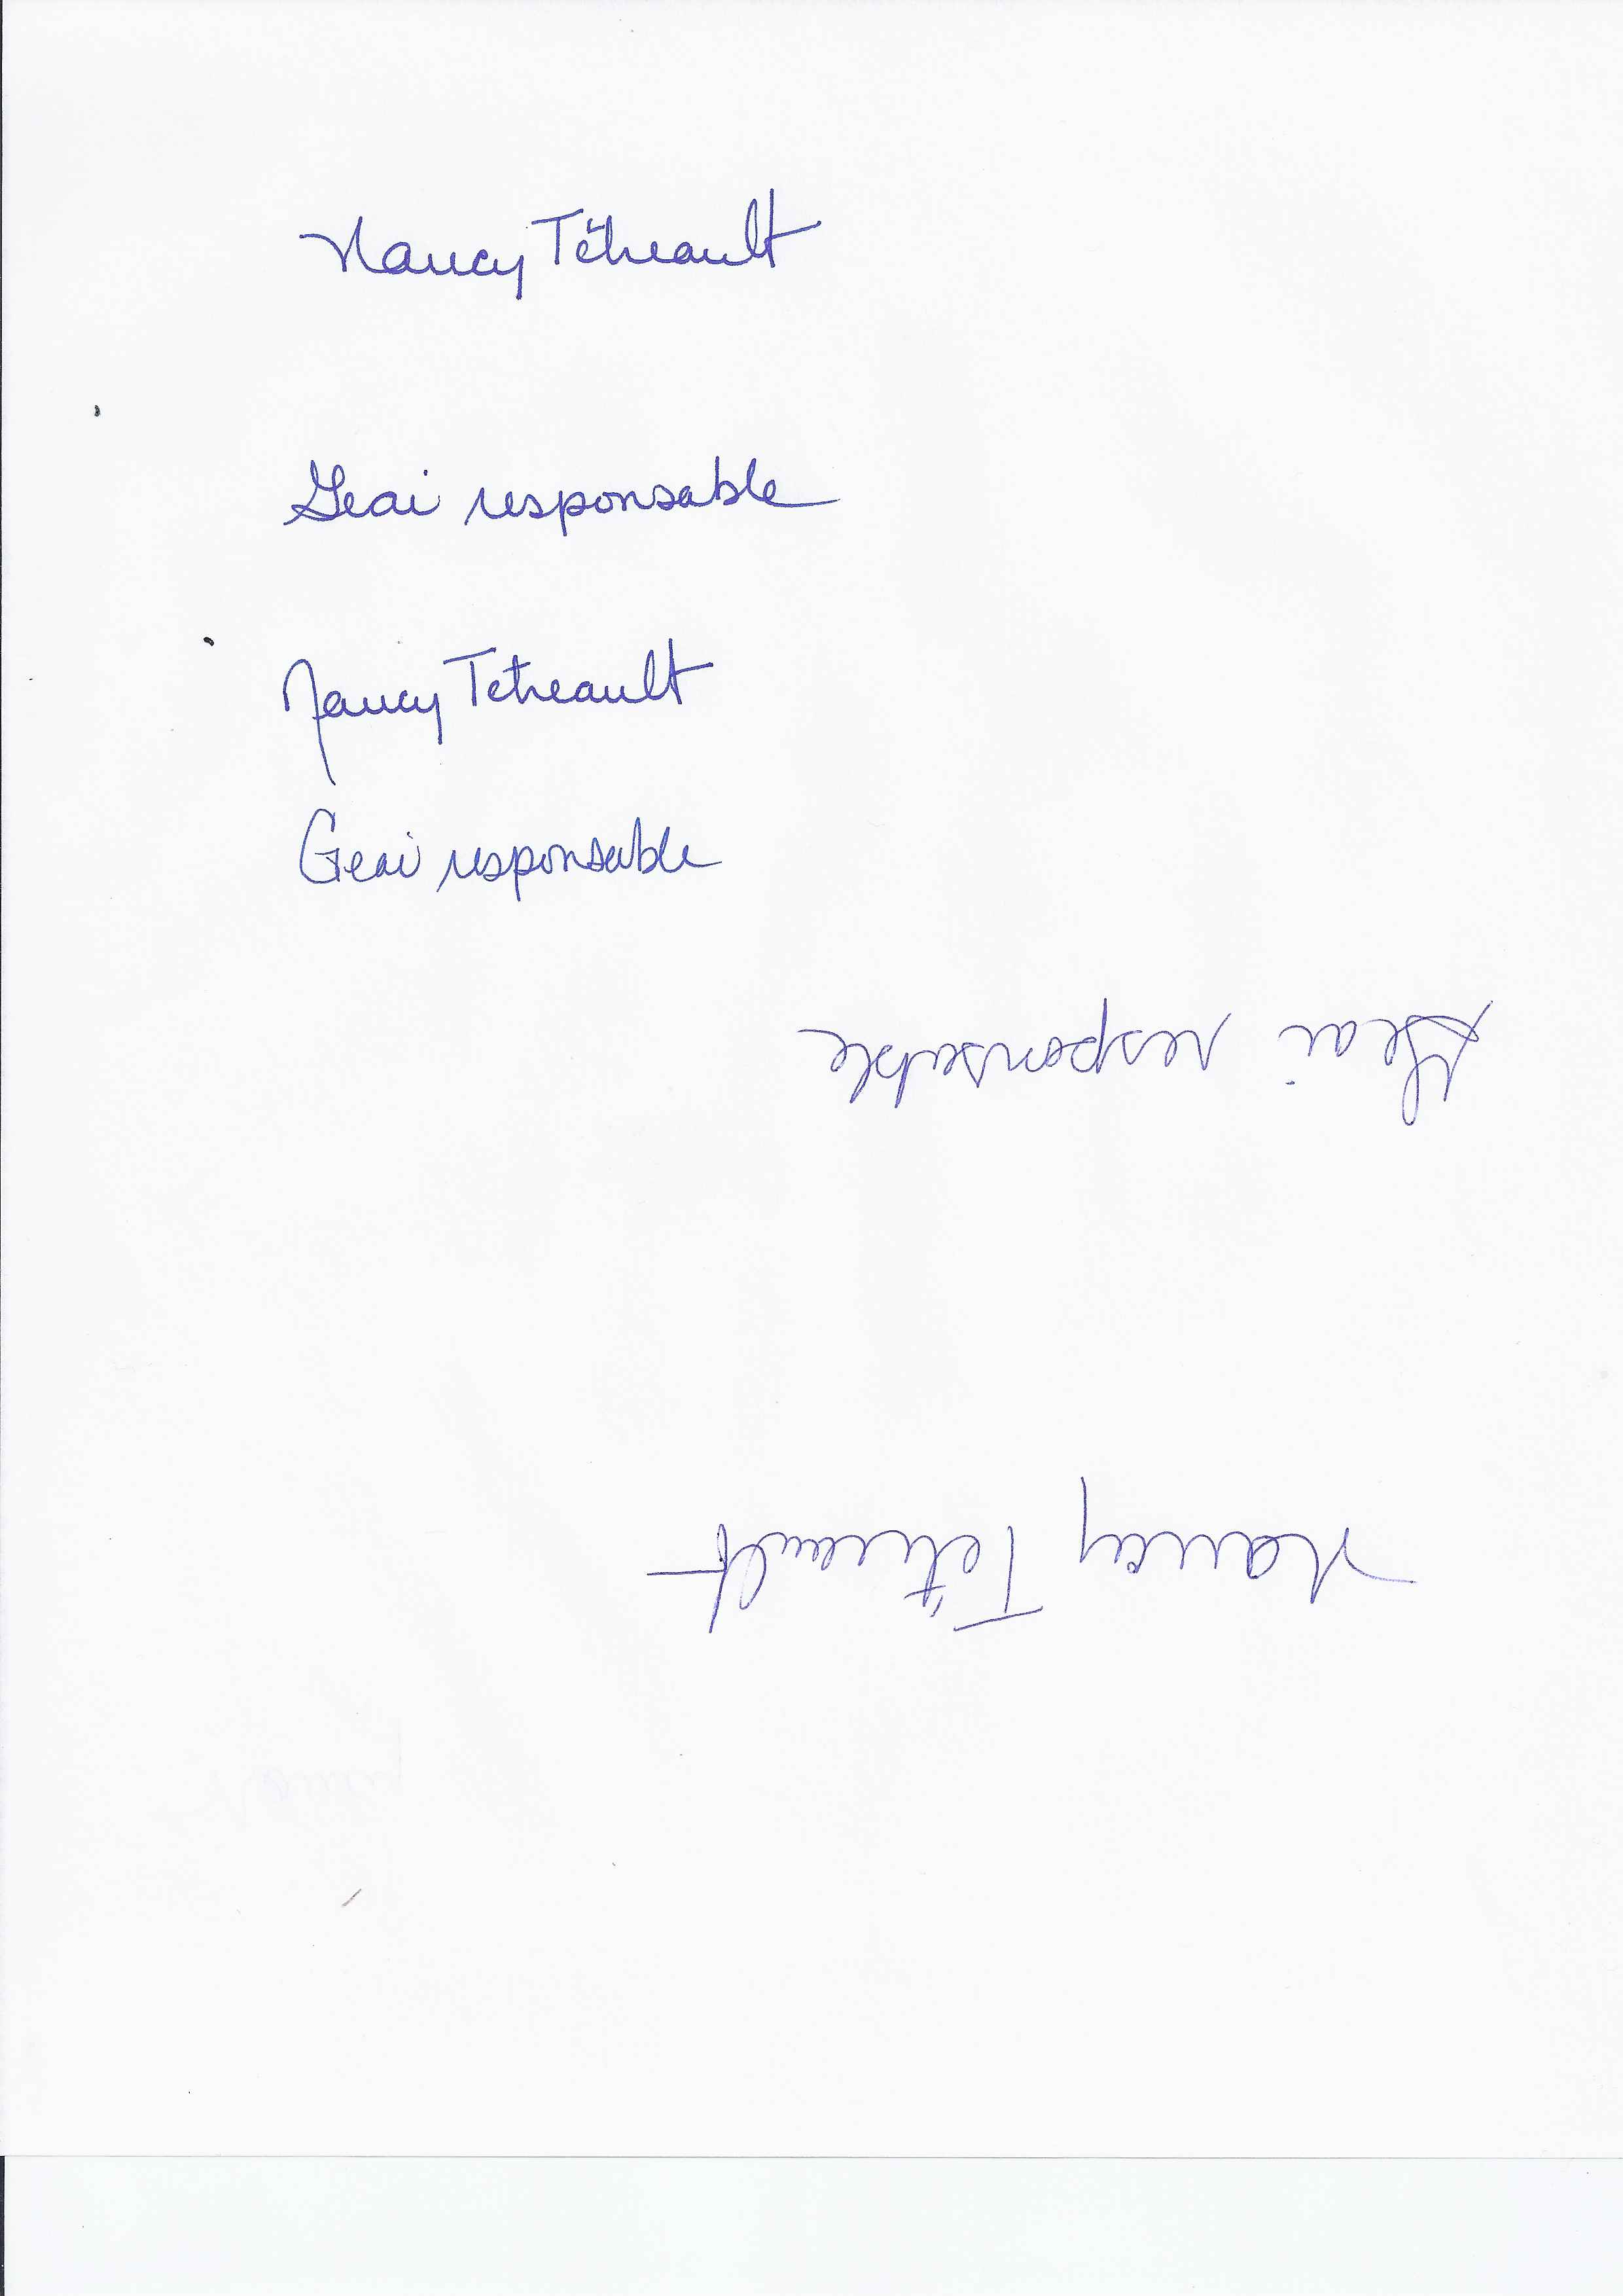 Nancy Tétreault
Geai responsable
Nancy Tetreault
Geai responsable
Geai responsable
Nancy Tétreault